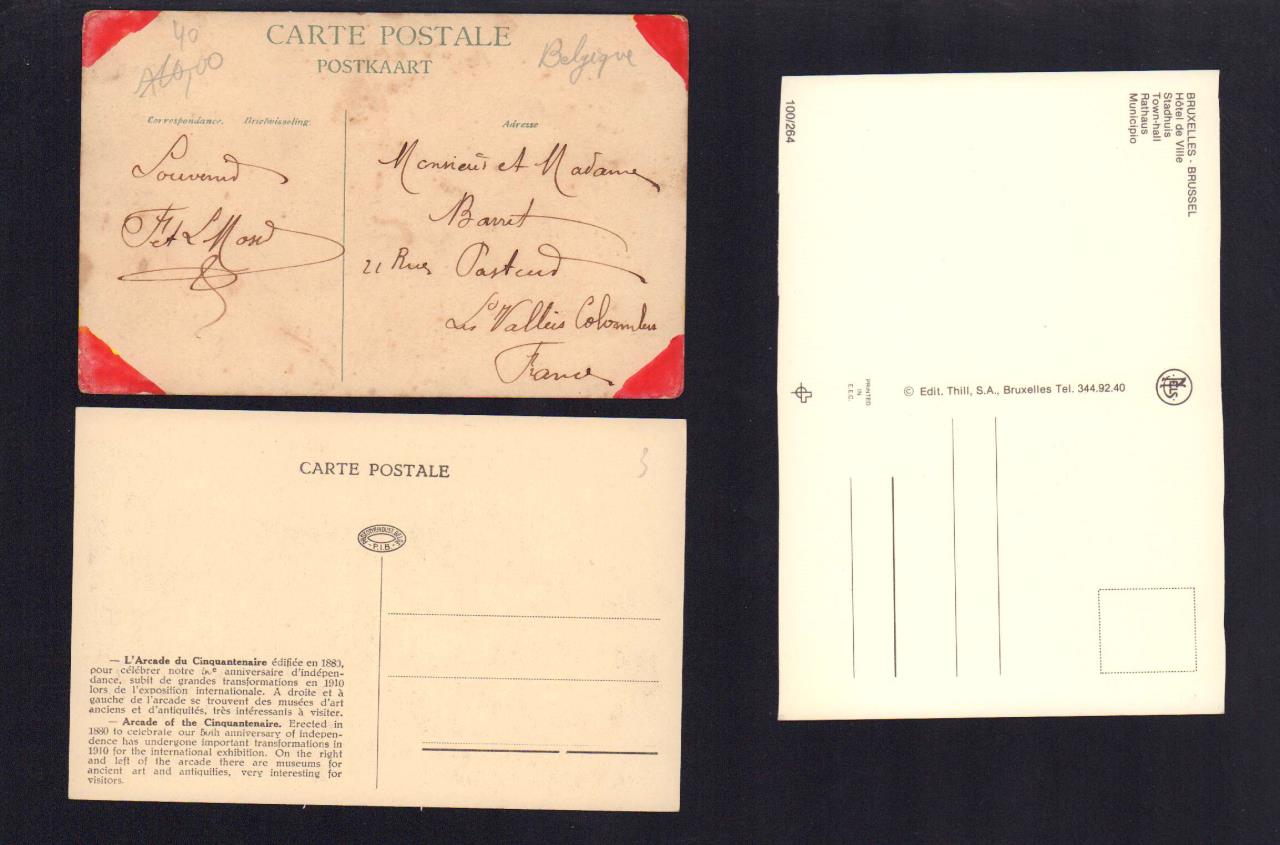 40
Belgique
CARTE POSTALE
POSTKAART
Correspondance. Briefwisseling.
Adresse
Souvenir
Monsieur et Madame
Barret
21 Rue Pasteur
La Vallées Colombes
France
CARTE POSTALE
3
P.I.B.
— L'Arcade du Cinquantenaire édifiée en 1880,
pour célébrer notre 50e anniversaire d'indépen-
dance, subit de grandes transformations en 1910
lors de l'exposition internationale. A droite et à
gauche de l'arcade se trouvent des musées d'art
anciens et d'antiquités, très intéressants à visiter.
— Arcade of the Cinquantenaire. Erected in
1880 to celebrate our 50th anniversary of indepen-
dence has undergone important transformations in
1910 for the international exhibition. On the right
and left of the arcade there are museums for
ancient art and antiquities, very interesting for
visitors.
BRUXELLES - BRUSSEL
Hôtel de Ville
Stadhuis
Town-hall
Rathaus
Municipio
100/264
PRINTED
IN
E.E.C.
© Edit. Thill, S.A., Bruxelles Tel. 344.92.40
NELS